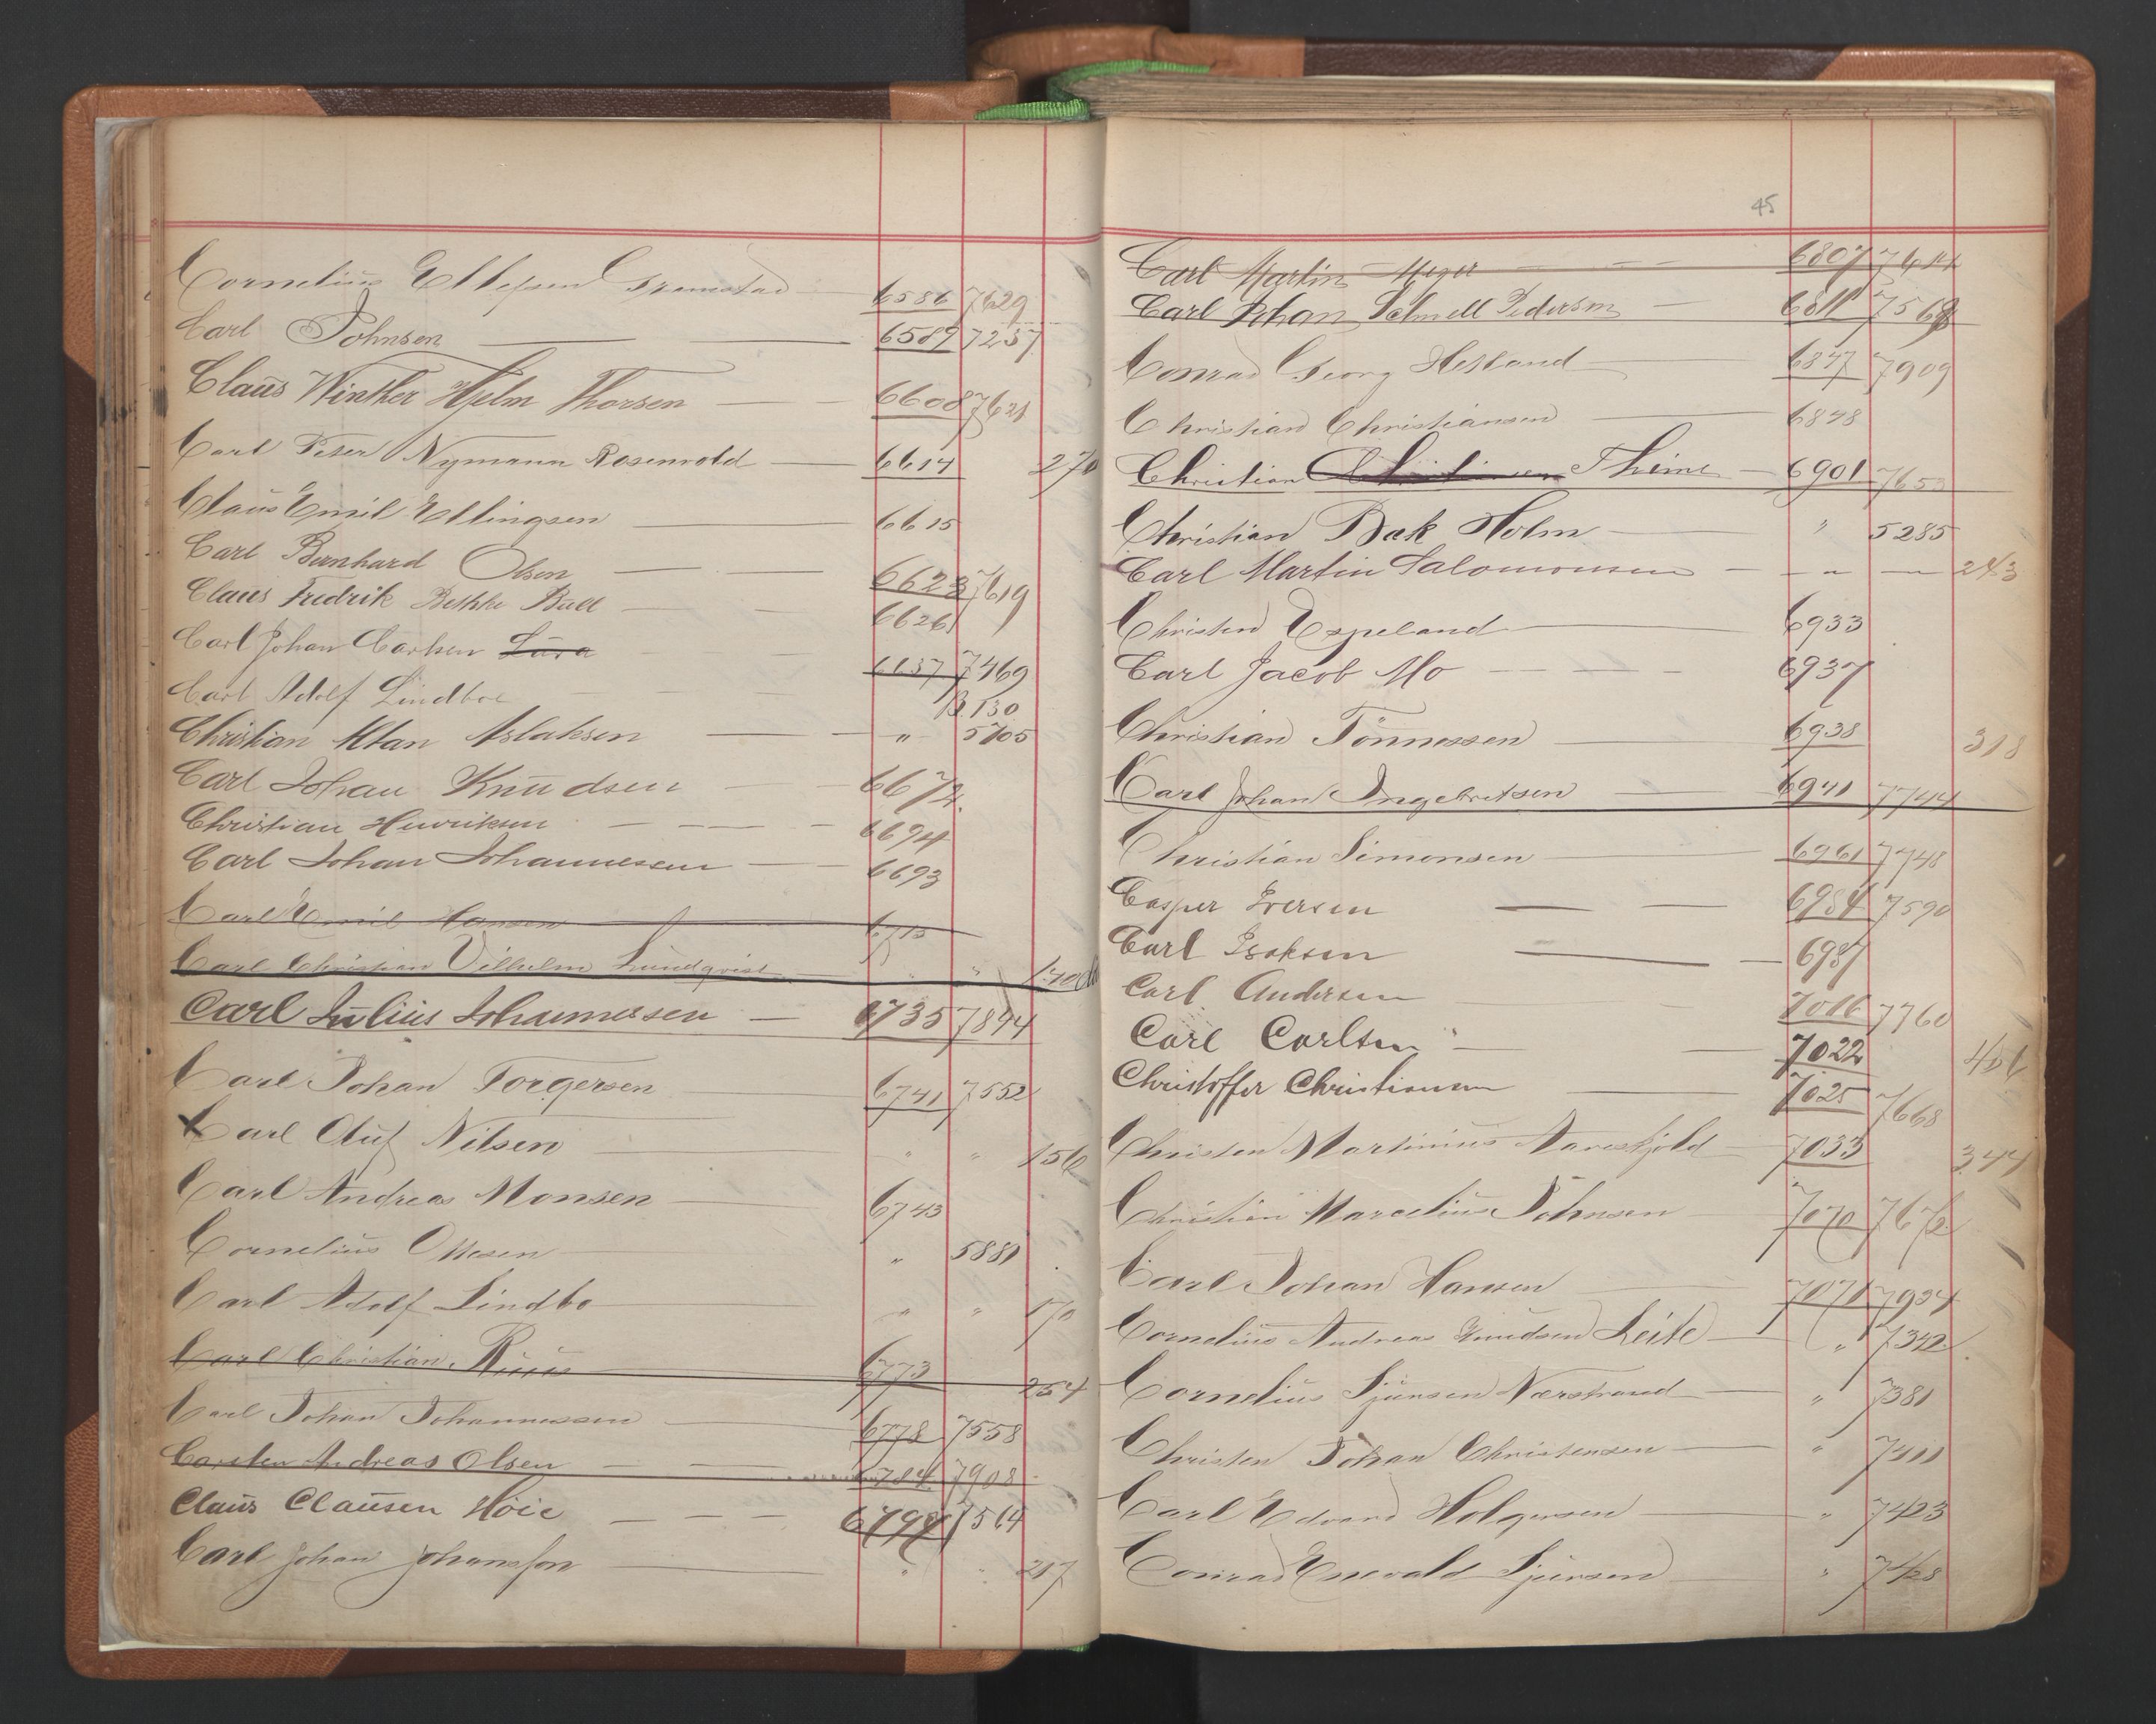 Cornelius Ellefsen Grimstad 6586 7629
Carl Johnsen 6589 7237
Claus Winther Hjelm Thorsen 6608 7621
Carl Peter Nymann Rosenvold 6614 270
Claus Emil Ellingsen 6615
Carl Bernhard Olsen 6623 7619
Claus Fredrik Bethke Bull 6626
Carl Johan Carlsen Lura 6637 7469
Carl Adolf Lindboe B.130
Christian Alan Aslaksen " 5705
Carl Johan Knudsen 6672
Christian Henriksen 6694
Carl Johan Johannesen 6693
Carl Emil Hansen 6715
Carl Christian Vilhelm Lundqvist " "
Carl Julius Johannesen 6735 7894
Carl Johan Torgersen 6741 7552
Carl Oluf Nilsen " " 156
Carl Andreas Monsen 6743
Cornelius Ottesen " 5881
Carl Adolf Lindbo " " 170
Carl Christian Ruus 6773 254
Carl Johan Johannessen 6778 7558
Carsten Andreas Olsen 6784 7908
Claus Clausen Høie 6797 7564
Carl Johan Johansson " " 217
45
Carl Martin Meyer 6807
Carl Johan Schnell Pedersen 6811 7568
Conrad Georg Hesland 6847 7909
Christian Christiansen 6848
Christian Christiansen Theime 6901 7653
Christian Bak Holm " 5285
Carl Martin Salomonsen " 243
Christen Espeland 6933
Carl Jacob Mo 6937
Christian Tönnessen 6938 318
Carl Johan Ingebretsen 6941 7744
Christian Simonsen 6961 7748
Casper Iversen 6984 7590
Carl Isaksen 6987
Carl Andersen 7016 7760
Carl Carlsen 7022
Christoffer Christiansen 7025 7668
Christen Martinius Aareskjold 7033 344
Christian Marcelius Johnsen 7070 7672
Carl Johan Hansen 7071 7934
Cornelius Andreas Knudsen Leite " 7342
Cornelius Sjursen Nærstrand " 7381
Christen Johan Christensen " 7411
Carl Edvard Holgersen " 7423
Conrad Enevald Sjursen " 7428